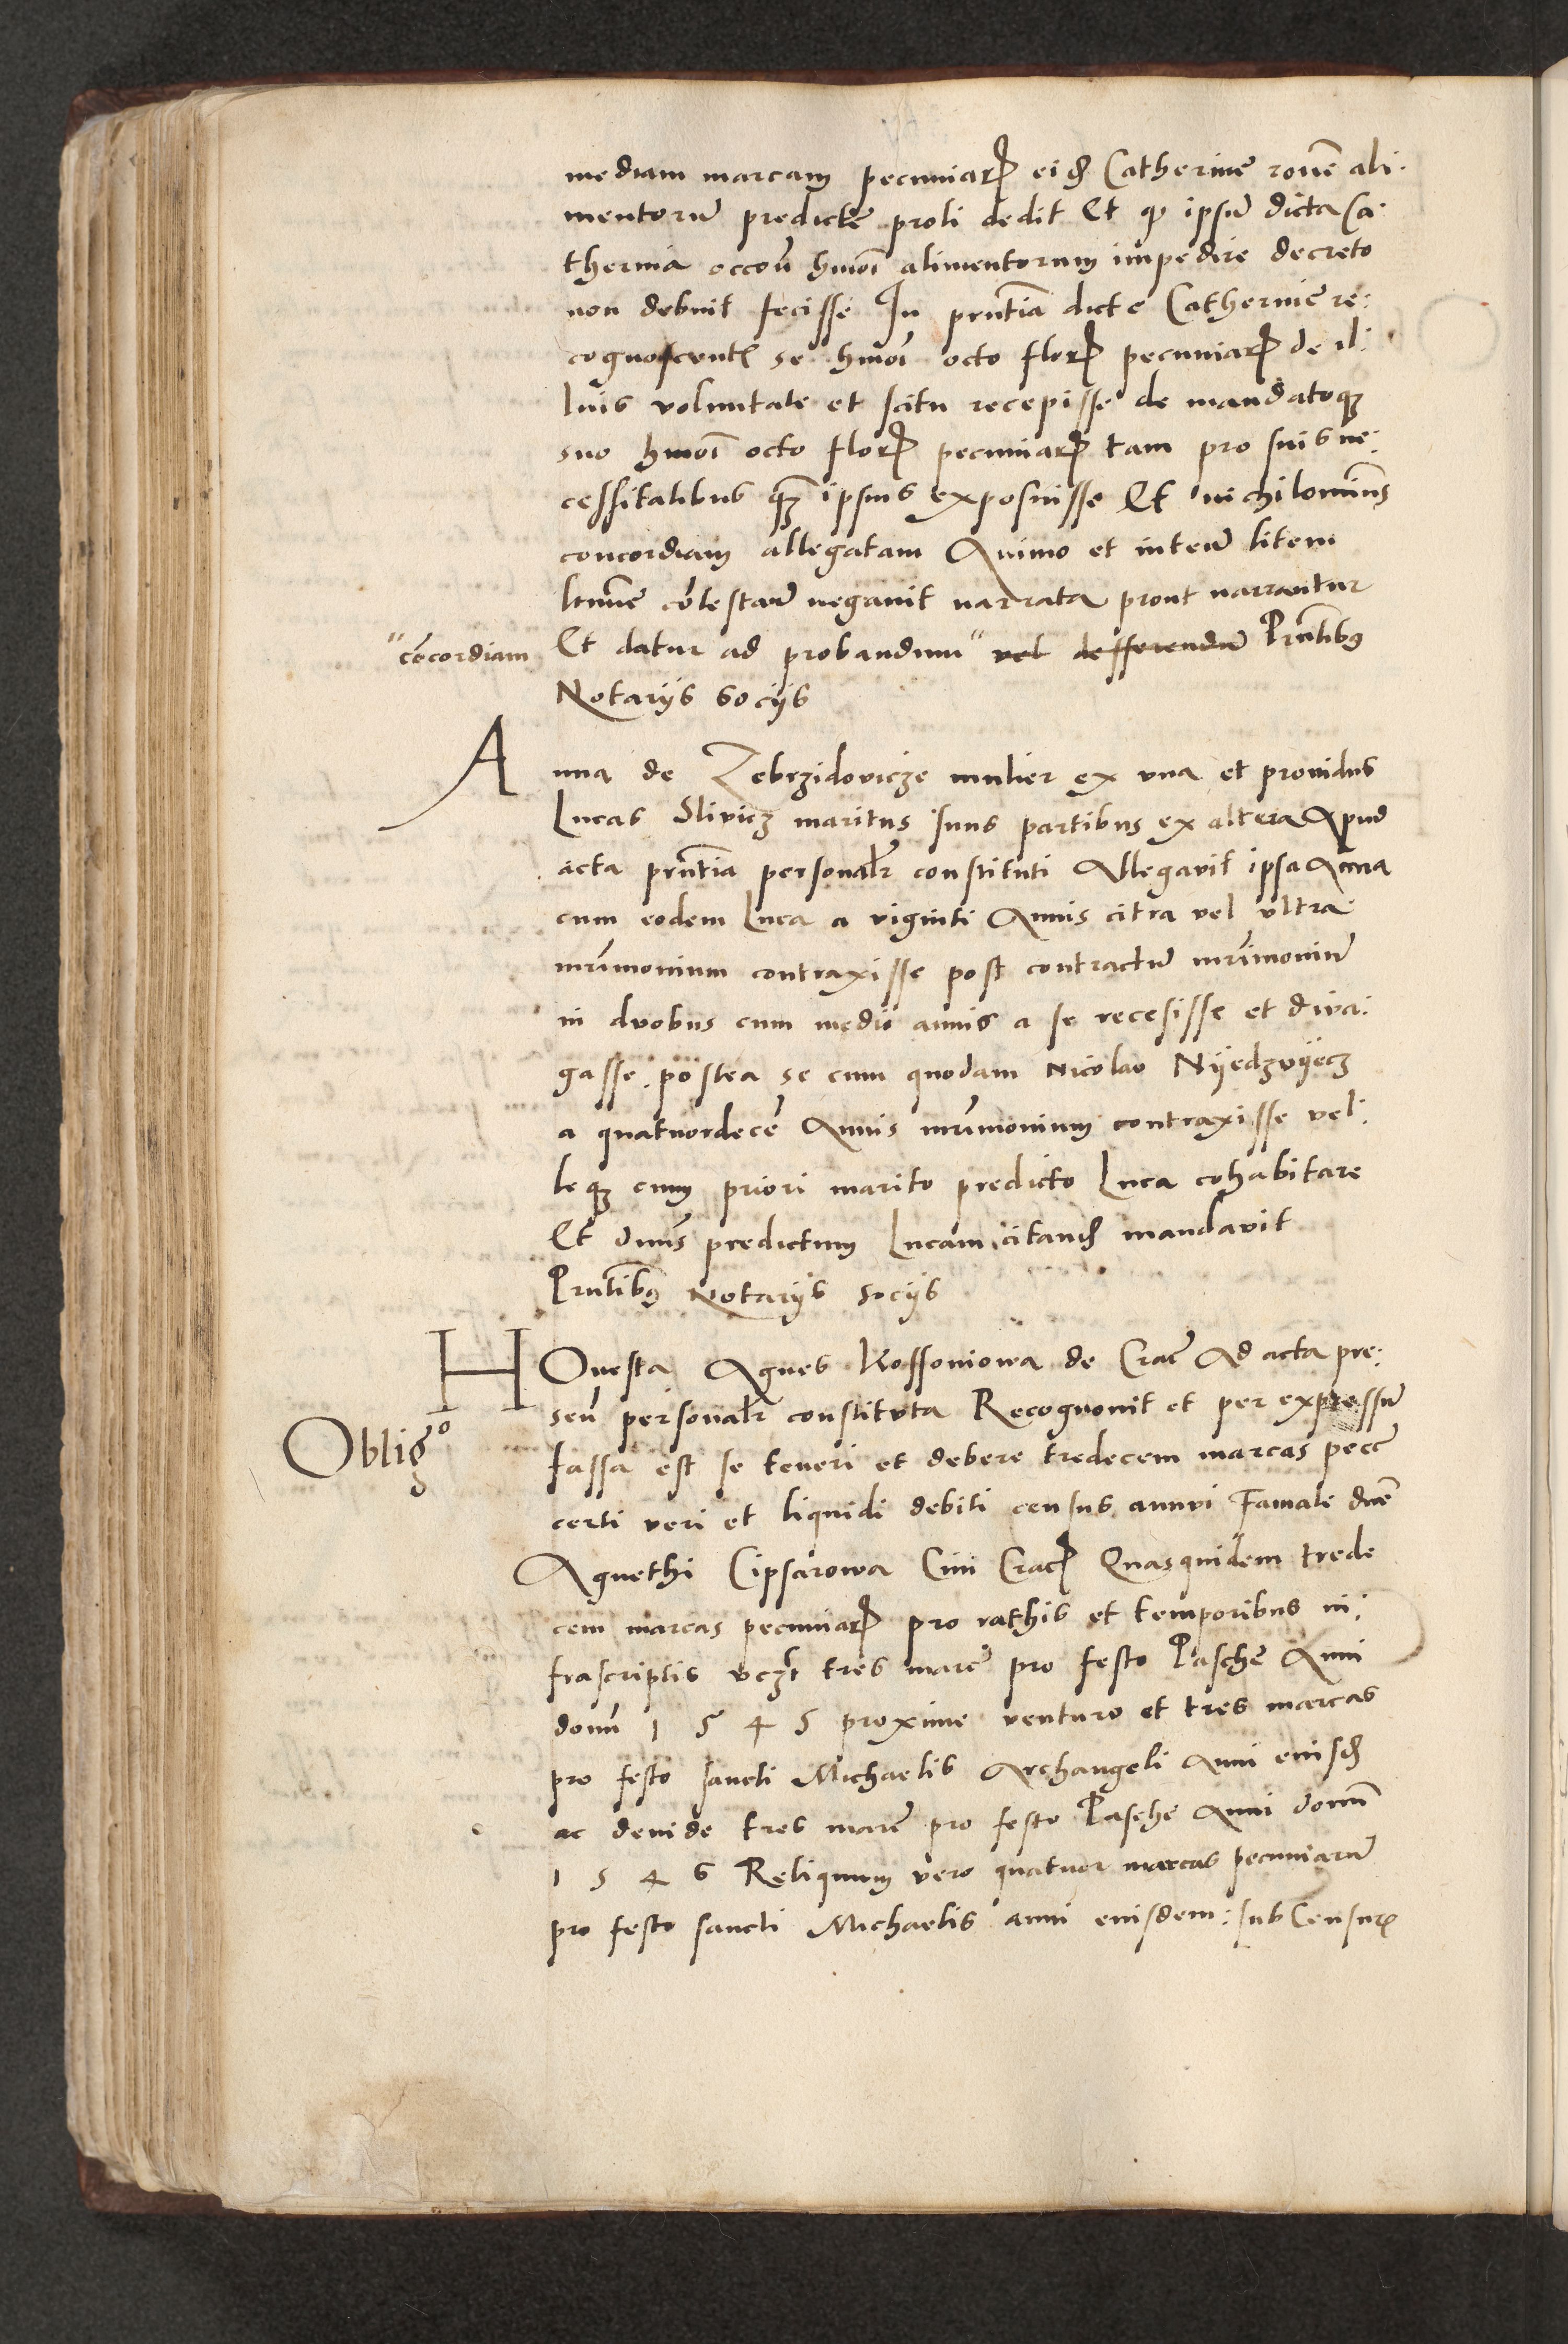 mediam marcam pecuniarꝝ eidꝫ Catherine rōne ali:
mentorū predicte proli dedit Et qͦ ipsū dicta Ca:
therina occōn hmōi alimentorum impedire decreto
non debuit fecisse In prntia dicte Catherine re:
cognoscentꝭ se hmōi octo florꝝ pecuniarꝝ de il:
lius voluntate et scitu recepisse de mandatoqꝫ
suo hmōi octo florꝝ pecuniarꝝ tam pro suis ne:
cessitatibus qꝫ ipsius exposuisse Et nichilominꝰ
concordiam allegatam Animo et inteñ litem
ltīme cōtestañ negavit narrata prout narrantur
"cōcordiam Et datur ad probandum " vel defferendū Prntibꝰ
Notarijs socijs
Anna de Zebrzidovicze mulier ex una et providus
Lucas Slivicz maritus suus partibus ex altera Apud
acta prntia personalr constituti Allegavit ipsa Anna
cum eodem Luca a viginti Annis citra vel ultra
mrimonium contraxisse post contractū mrimoniū
in duobus cum medio annis a se recesisse et diva:
gasse postea se cum quodam Nicolao Nyedzvyecz
a quatuordecē Annis mrimonium contraxisse vel:
leqꝫ cum priori marito predicto Luca cohabitare
Et dnūs predictum Lucam citandꝫ mandavit
Prntibꝰ Notarijs socijs
HOnesta Agnes Kossoniowa de Crac Ad acta pre:
Obligᵒ señ personalr constituta Recognovit et per expressū
fassa est se teneri et debere tredecem marcas pecc
certi veri et liquidi debiti census annui Famate dnē
Agnethi Cipsarowa Civi Cracꝝ Quasquidem trede
cem marcas pecuniarꝝ pro rathis et temporibus in:
frascriptis vczt tres marc pro festo Pasche Anni
domī 1 5 4 5 proxime venturo et tres marcas
pro festo sancti Michaelis Archangeli Anni eiusdꝫ
ac deinde tres marc pro festo Pasche Anni domī
1 5 4 6 Reliquum vero quatuor marcas pecuniarū
pro festo sancti Michaelis anni eiusdem: sub Censurꝭ